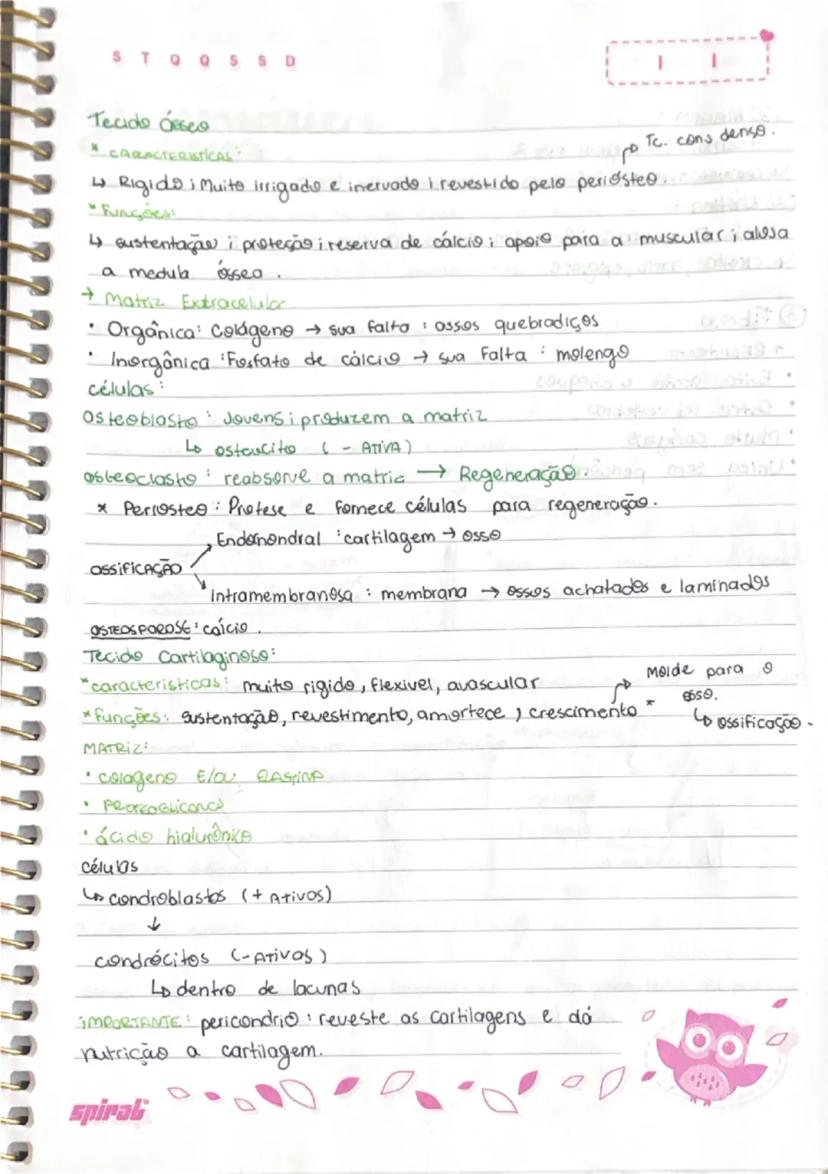 S T Q Q S S D
Tecido ósseo
* CARACTERISTICAS:
Tc. conj denso.
↳ Rigido; Muito irrigado e inervado; revestido pelo periósteo.
* Funções:
↳ sustentação; proteção; reserva de cálcio; apoio para a muscular; aloja
a medula óssea.
→ Matriz Extracelular
• Orgânica: Colágeno → sua falta: ossos quebradiços
• Inorgânica: Fosfato de cálcio → sua Falta: molengo
células:
Osteoblasto: Jovens; produzem a matriz
↳ osteócito (- ATIVA)
osteoclasto: reabsorve a matriz → Regeneração.
* Periosteo: Protese e fornece células para regeneração.
Endornondral: cartilagem → osso
OSSIFICAÇÃO
Intramembranosa: membrana → ossos achatados e laminados
OSTEOSPOROSE: cálcio.
Tecido Cartilaginoso:
* caracteristicas: muito rigido, flexivel, avascular
Molde para o
osso.
* funções: sustentação, revestimento, amortece, crescimento *
↳ ossificação.
MATRIZ:
• colageno E/OU ELASTINA
• PROTEOGLICANOS
• ácido hialurônico
células
↳ condroblastos (+ Ativos)
↓
condrócitos (- Ativos)
↳ dentro de lacunas
IMPORTANTE: pericondrio: reveste as cartilagens e dá
nutrição a cartilagem.
spiral